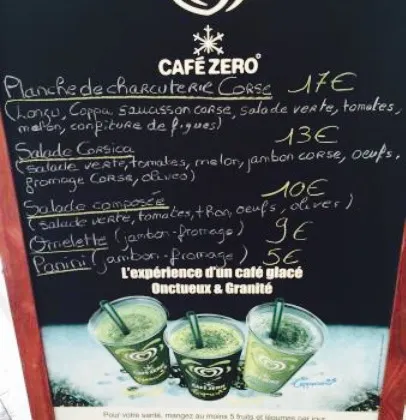 CAFÉ ZERO°
Planche de charcuterie Corse 17€
(Lonzu, Coppa, saucisson corse, salade verte, tomates,
melon, confiture de figues)
Salade Corsica 13€
(salade verte, tomates, melon, jambon corse, oeufs,
fromage corse, olives)
Salade composée 10€
(salade verte, tomates, thon, oeufs, olives)
Omelette (jambon-fromage) 9€
Panini (jambon-fromage) 5€
L'expérience d'un café glacé
Onctueux & Granité
CAFÉ ZERO
CAFÉ ZERO
CAFÉ ZERO
Cappuccino
Pour votre santé, mangez au moins 5 fruits et légumes par jour